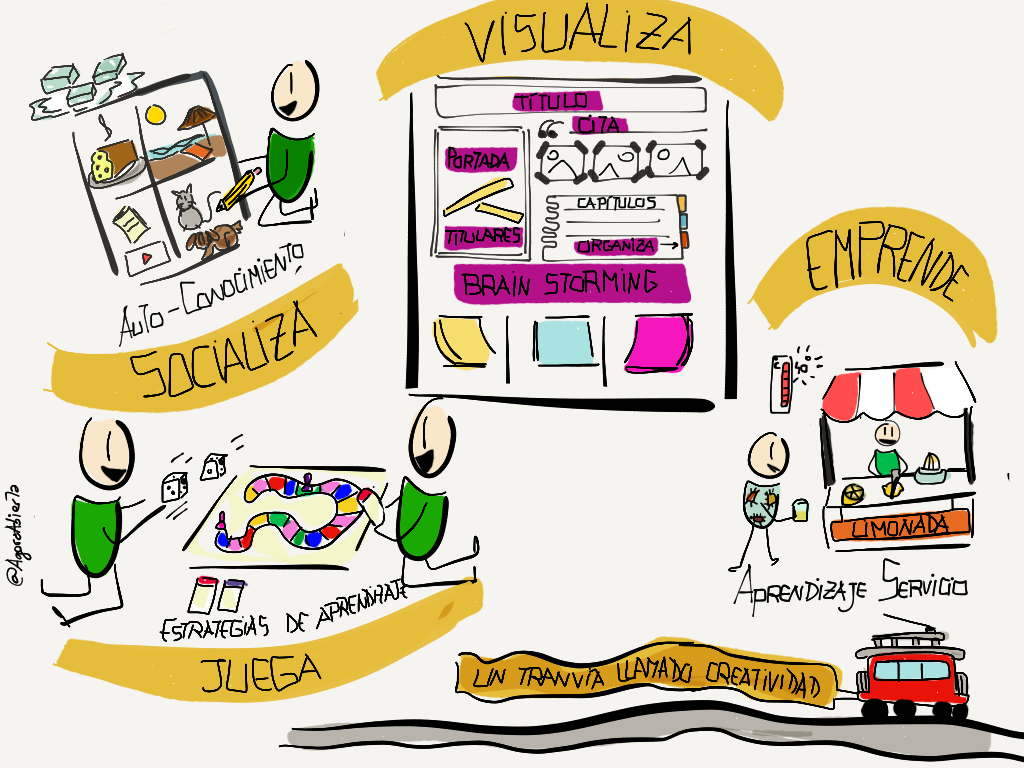 VISUALIZA
TÍTULO
CITA
PORTADA
TITULARES
CAPÍTULOS
ORGANIZA
BRAIN STORMING
AUTO-CONOCIMIENTO
SOCIALIZA
EMPRENDE
LIMONADA
APRENDIZAJE SERVICIO
@AgoraAbierta
ESTRATEGIAS DE APRENDIZAJE
JUEGA
UN TRANVÍA LLAMADO CREATIVIDAD